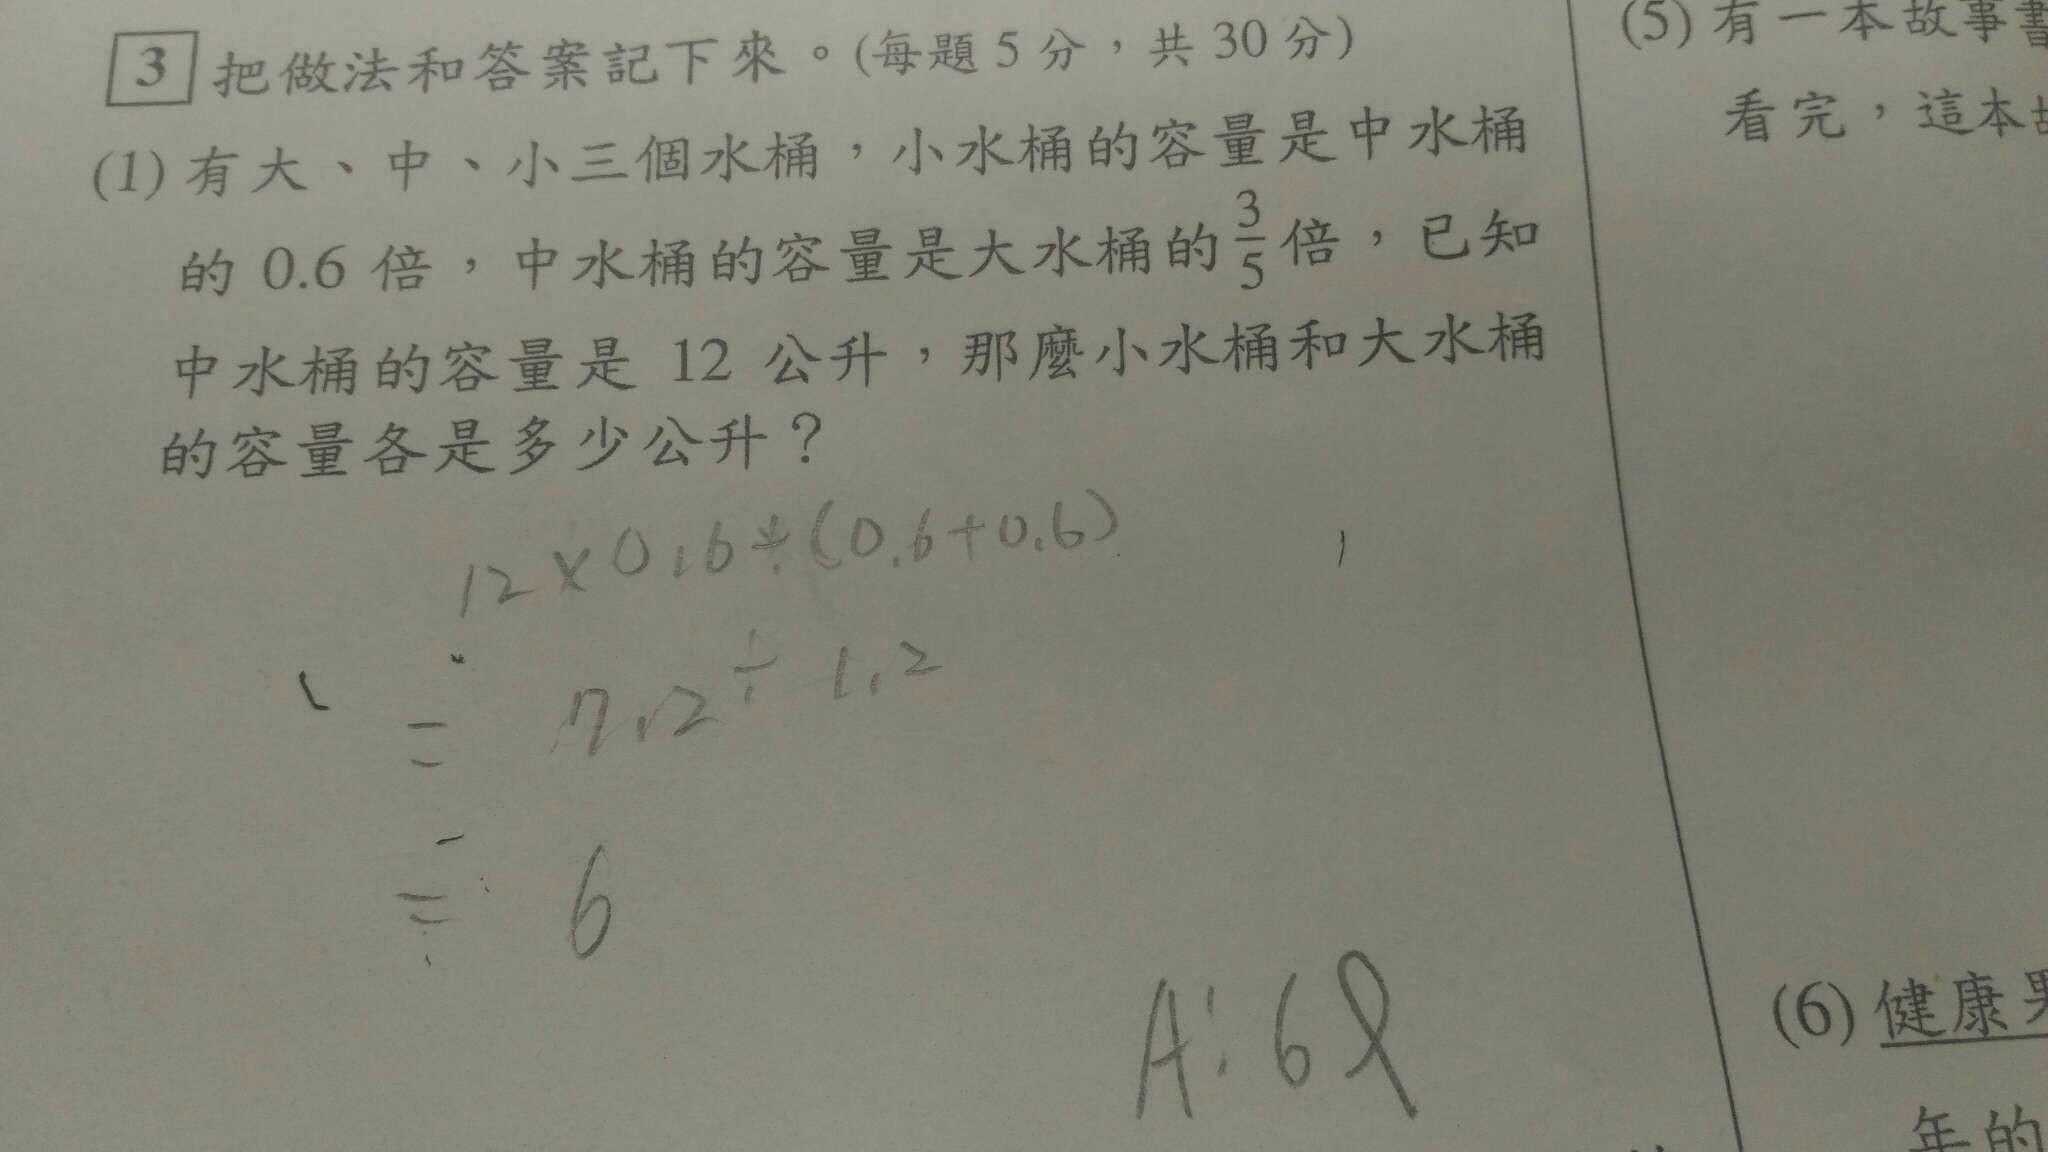 3 把做法和答案記下來。(每題 5 分，共 30 分)
(1) 有大、中、小三個水桶，小水桶的容量是中水桶
的 0.6 倍，中水桶的容量是大水桶的 3/5 倍，已知
中水桶的容量是 12 公升，那麼小水桶和大水桶
的容量各是多少公升？
12×0.6÷(0.6+0.6)
= 7.2÷1.2
= 6
A:6ℓ
(5) 有一本故事書
看完，這本故
(6) 健康男
年的